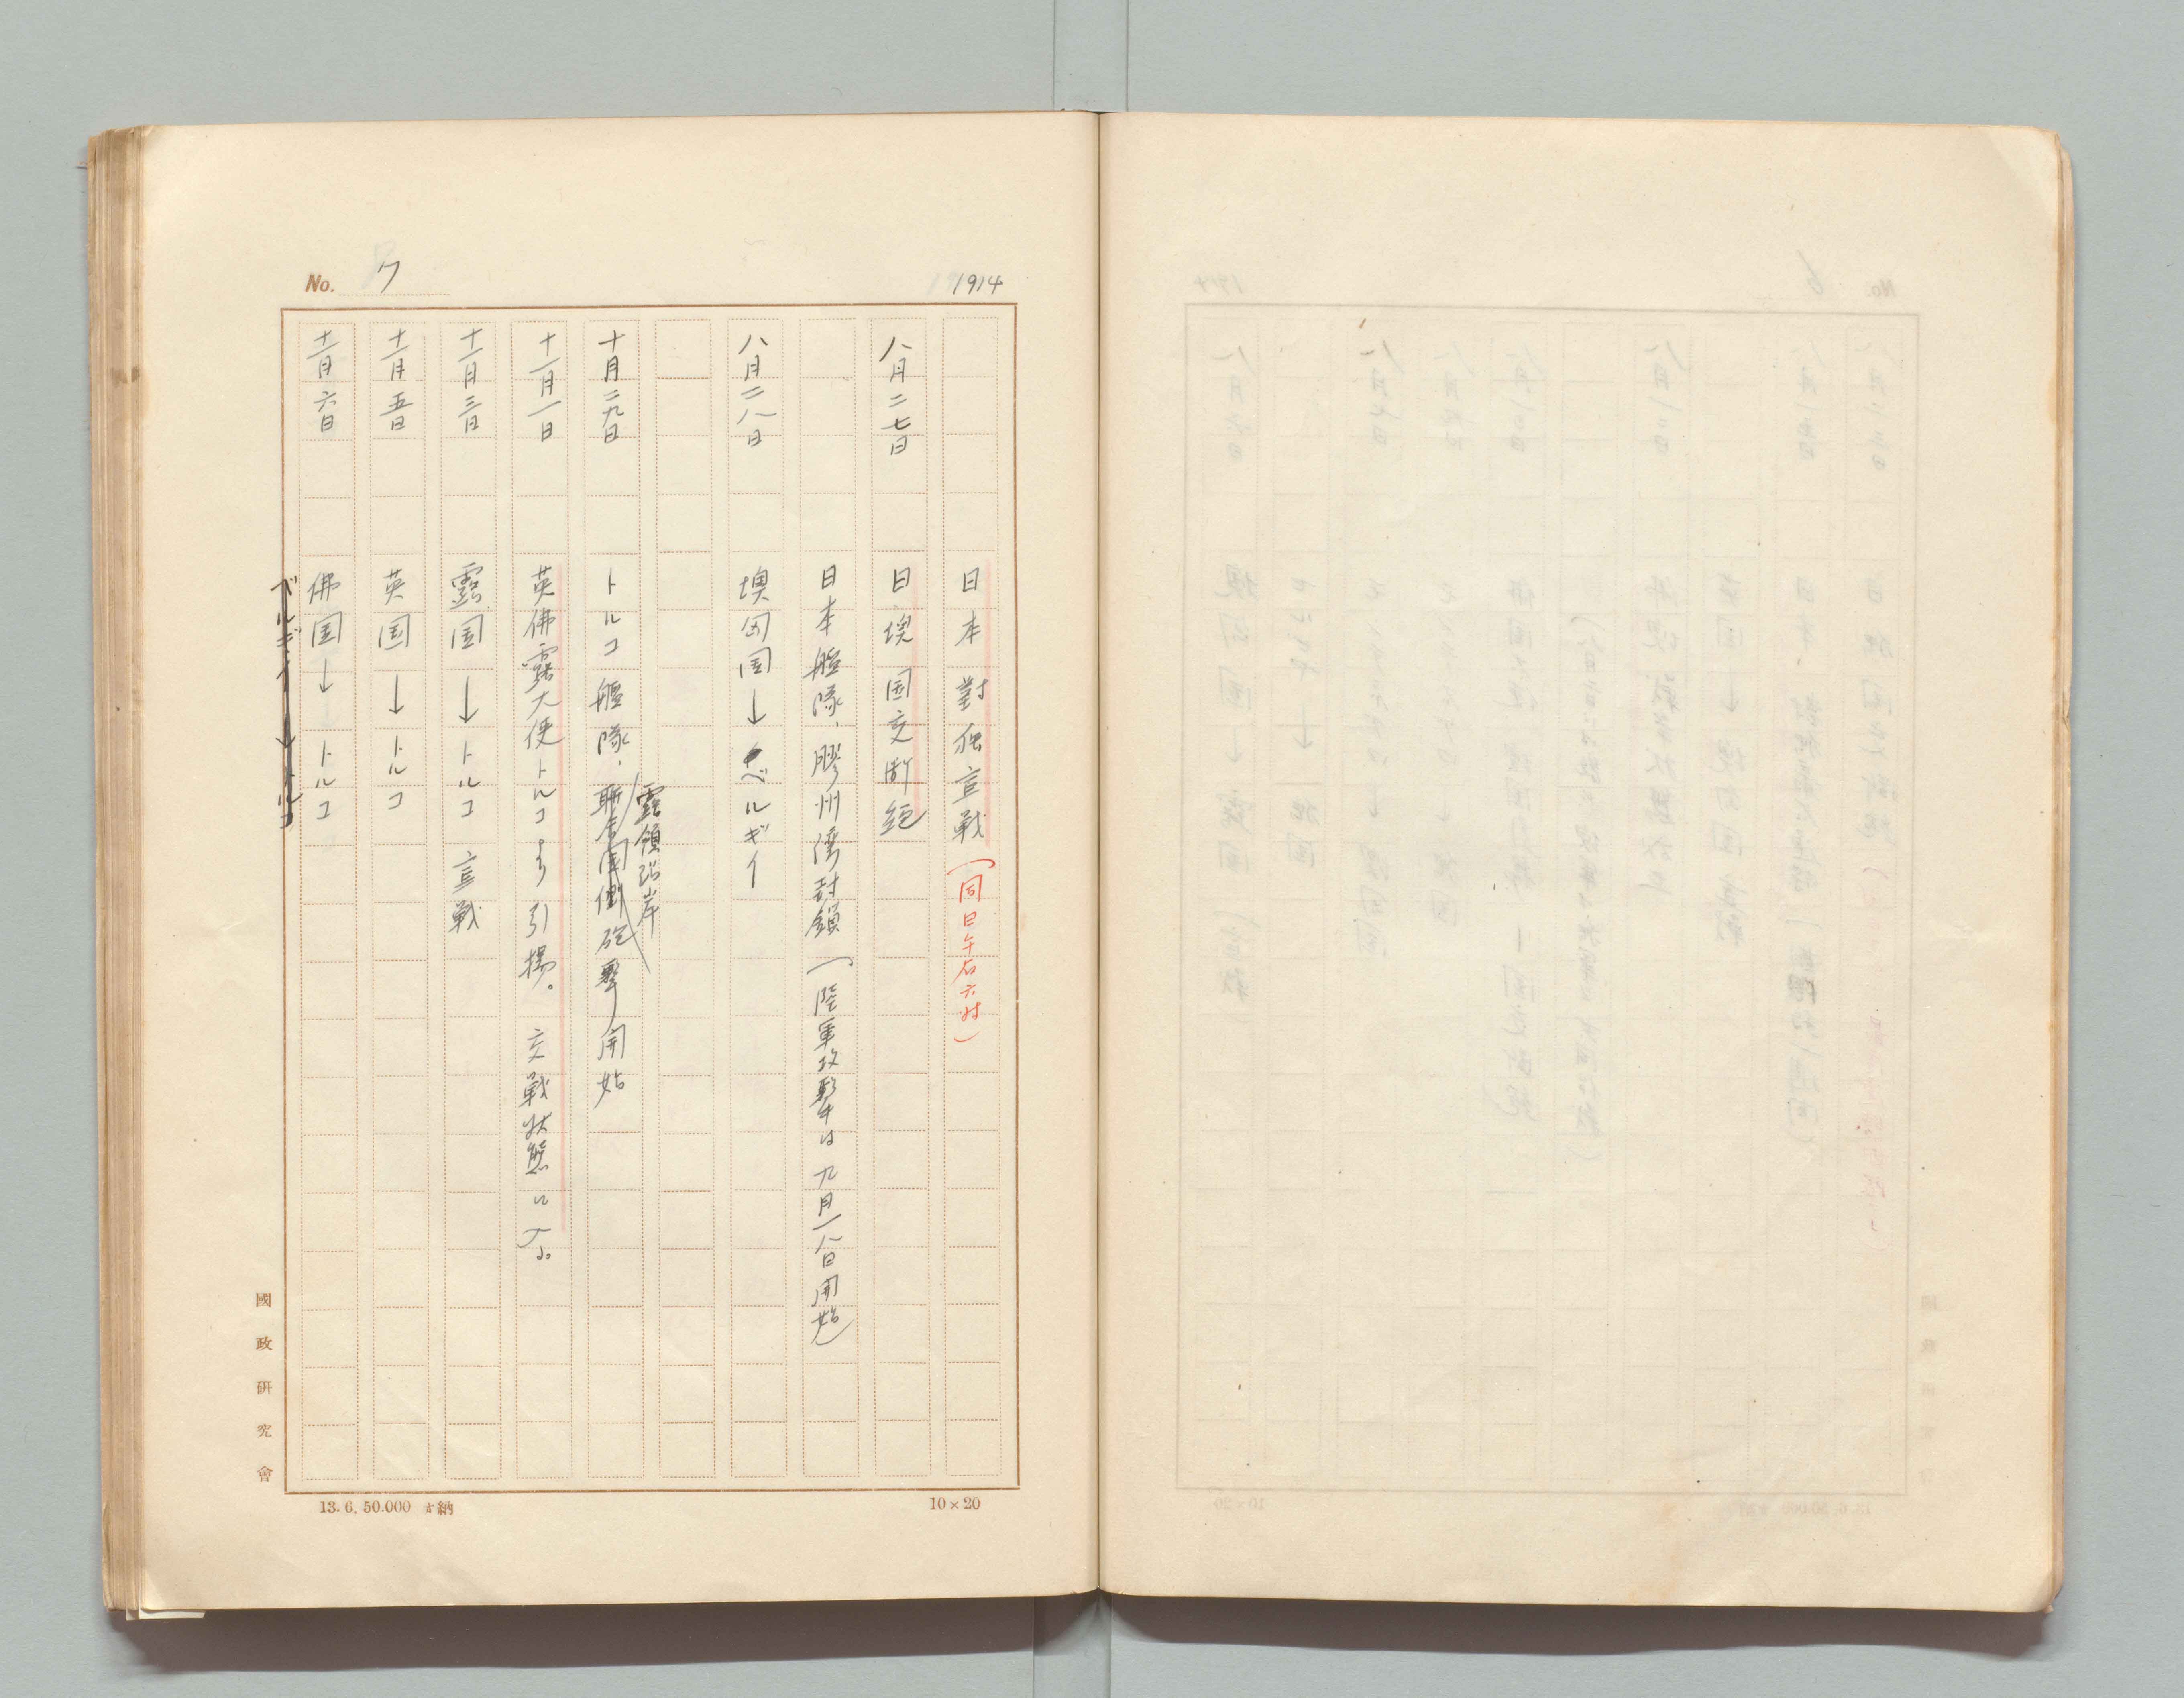 No. 7
1914
日本 對独宣戰(同日午后六時)
八月二七日 日墺国交断絶
日本艦隊、膠州湾封鎖(陸軍攻撃は九月一八日開始)
八月二八日 墺匈国→ベルギイ
露領沿岸
十月二九日 トルコ艦隊、聯合国側砲撃開始
十一月一日 英佛露大使トルコより引揚。交戰状態に入る。
十一月三日 露国→トルコ 宣戰
十一月五日 英国→トルコ
十一月六日 佛国→トルコ
ベルギイ→トルコ
國政研究會
13.6.50.000 納
10×20